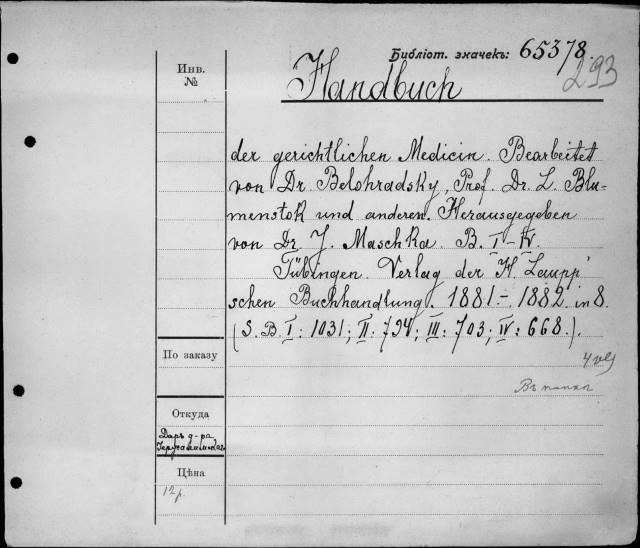 Библіот. значекъ: 65378.
293
Инв.
№
Handbuch
der gerichtlichen Medicin. Bearbeitet
von Dr. Belohradsky, Prof. Dr. L. Blu-
menstok und anderen. Herausgegeben
von Dr. J. Maschka. B. I-IV.
Tübingen. Verlag der H. Laupp'
schen Buchhandlung. 1881.-1882. in 8.
(S. B. I: 1031; II: 794; III: 703; IV: 668.).
По заказу
Въ папки
Откуда
Даръ д-ра
Цѣна
12р.